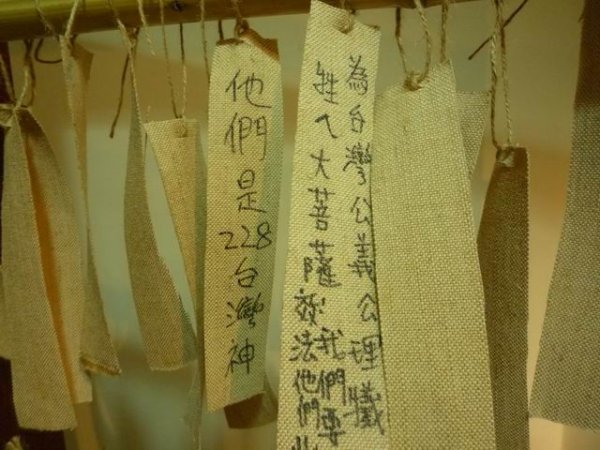 他們是228台灣神
為台灣公義公理犧
牲ㄟ大菩薩,我們要
效法他們